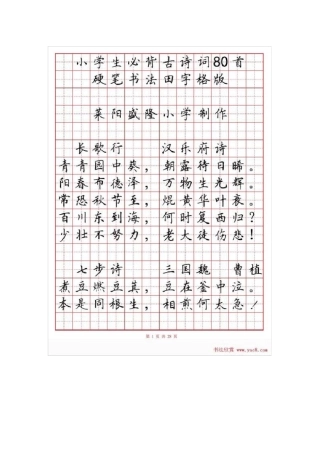 小学生必背古诗词80首
硬笔书法田字格版
莱阳盛隆小学制作
长歌行 汉乐府诗
青青园中葵，朝露待日晞。
阳春布德泽，万物生光辉。
常恐秋节至，焜黄华叶衰。
百川东到海，何时复西归？
少壮不努力，老大徒伤悲！
七步诗 三国魏 曹植
煮豆燃豆萁，豆在釜中泣。
本是同根生，相煎何太急！
书法欣赏 www.yac8.com